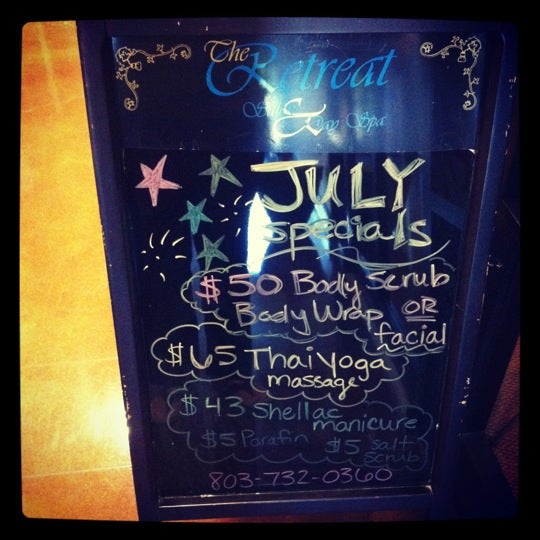 The
Retreat
& Day Spa
JULY
specials
$50 Body Scrub
Body Wrap OR
facial
$65 Thai Yoga
massage
$43 Shellac
manicure
$5 Parafin $5 salt
scrub
803-732-0360